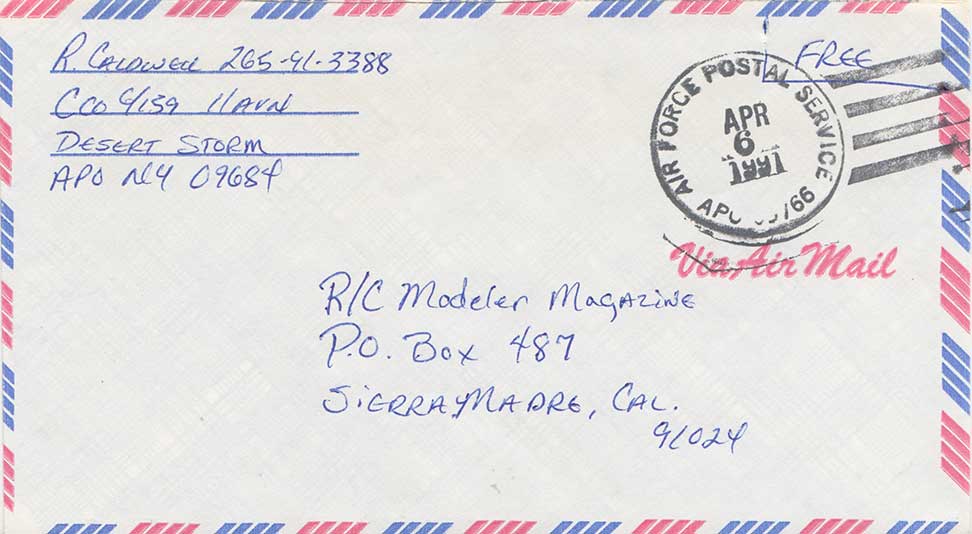 R. CALDWELL 265-41-3388
CCO 4/159 11AVN
DESERT STORM
APO NY 09684
FREE
AIR FORCE POSTAL SERVICE
APR
6
1991
Via Air Mail
R/C Modeler Magazine
P.O. Box 487
SIERRA MADRE, CAL.
91024